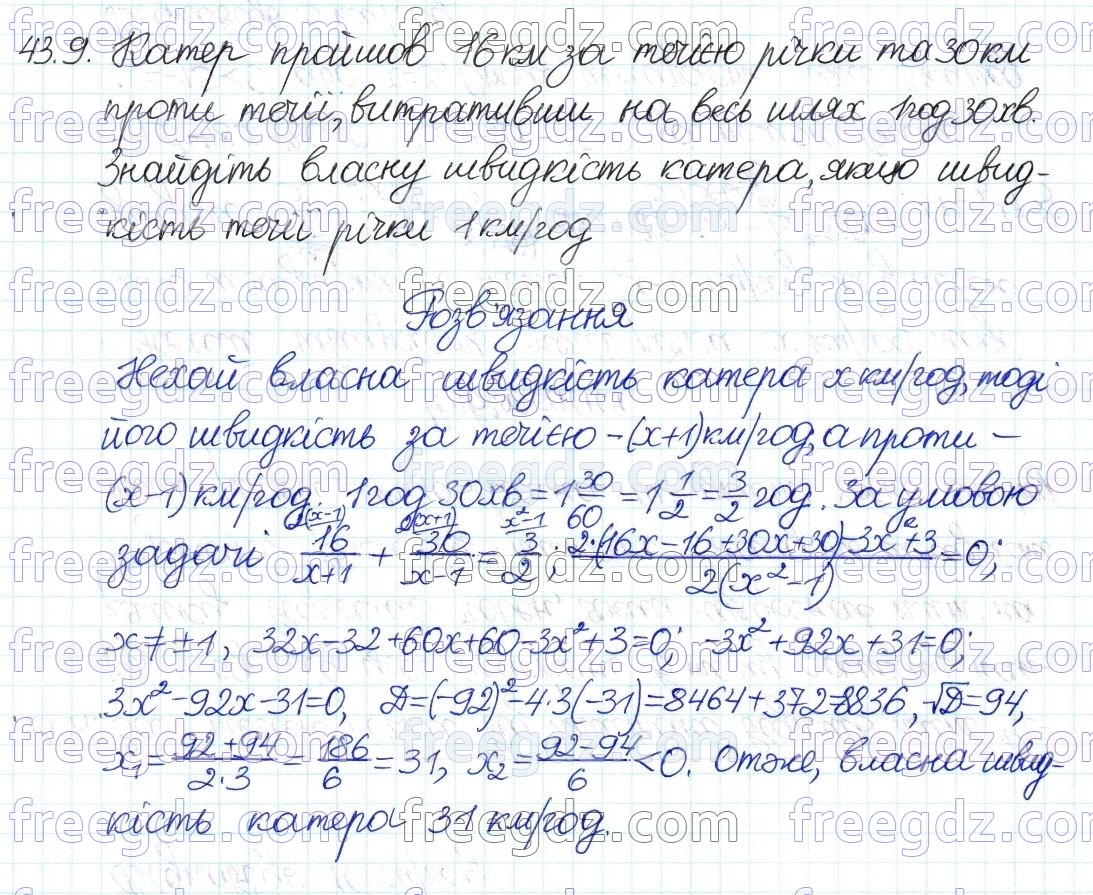 43.9. Катер пройшов 16 км за течією річки та 30 км
проти течії, витративши на весь шлях 1 год 30 хв.
Знайдіть власну швидкість катера, якщо швид-
кість течії річки 1 км/год
Розв'язання
Нехай власна швидкість катера x км/год, тоді
його швидкість за течією - (x+1) км/год, а проти -
(x-1) км/год. 1 год 30 хв = 1 30/60 = 1 1/2 = 3/2 год. За умовою
задачі 16/(x+1) + 30/(x-1) = 3/2; (2·(16x-16+30x+30)-3x²+3)/(2(x²-1)) = 0;
x≠±1, 32x-32+60x+60-3x²+3=0; -3x²+92x+31=0;
3x²-92x-31=0, D=(-92)²-4·3(-31)=8464+372=8836, √D=94,
x₁=(92+94)/(2·3)=186/6=31, x₂=(92-94)/6<0. Отже, власна швид-
кість катера 31 км/год.
freegdz.com